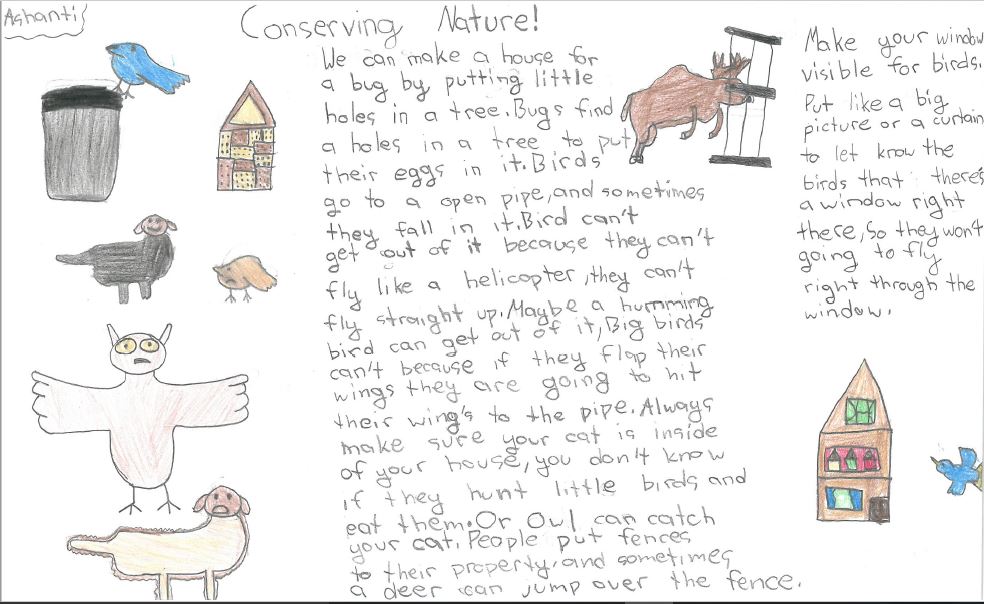 Ashanti
Conserving Nature!
We can make a house for
a bug by putting little
holes in a tree. Bugs find
a holes in a tree to put
their eggs in it. Birds
go to a open pipe, and sometimes
they fall in it. Bird can't
get out of it because they can't
fly like a helicopter, they can't
fly straight up. Maybe a humming
bird can get out of it, Big birds
can't because if they flap their
wings they are going to hit
their wing's to the pipe. Always
make sure your cat is inside
of your house, you don't know
if they hunt little birds and
eat them. Or Owl can catch
your cat. People put fences
to their property, and sometimes
a deer can jump over the fence.
Make your window
visible for birds.
Put like a big
picture or a curtain
to let know the
birds that there's
a window right
there, So they won't
going to fly
right through the
window.